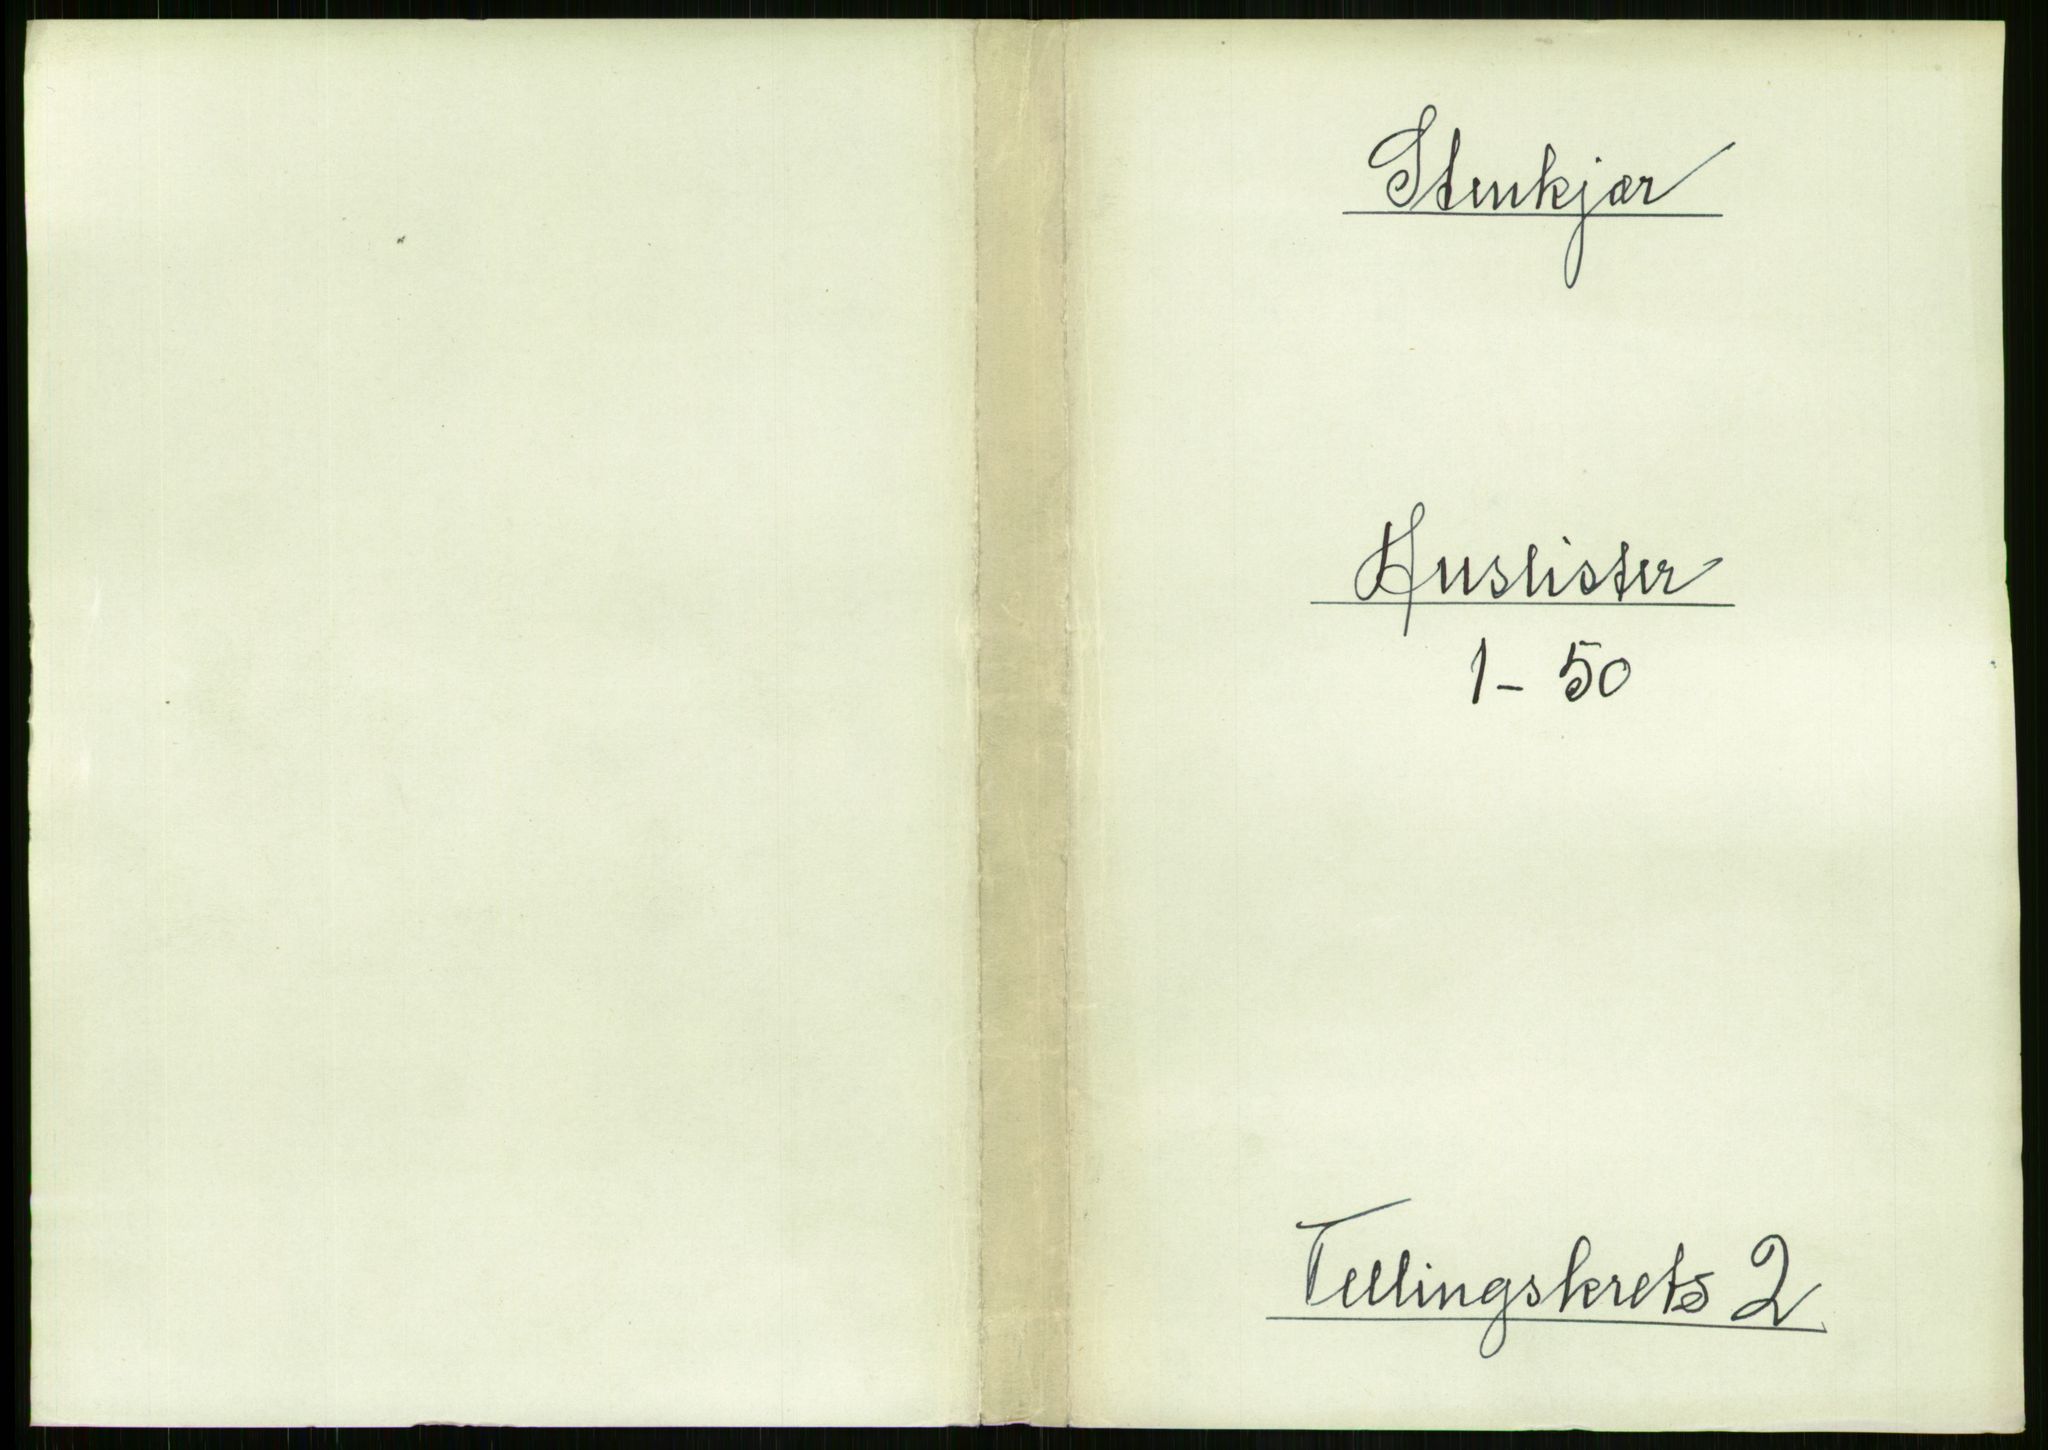 Stenkjær
Huslister
1 - 50
Tellingskrets 2